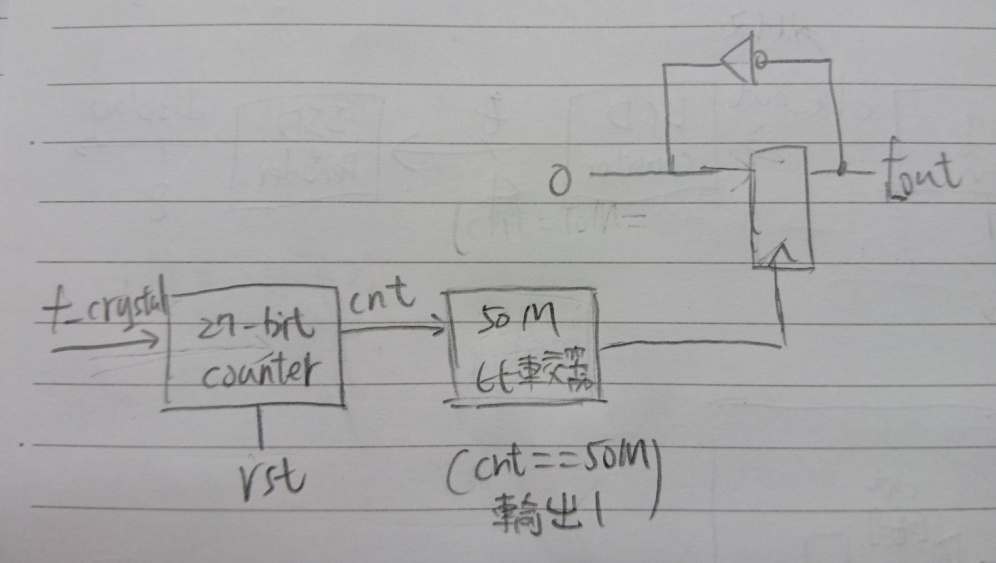 0
fout
f_crystal
27-bit
counter
cnt
50M
比較器
rst
(cnt==50M)
輸出1